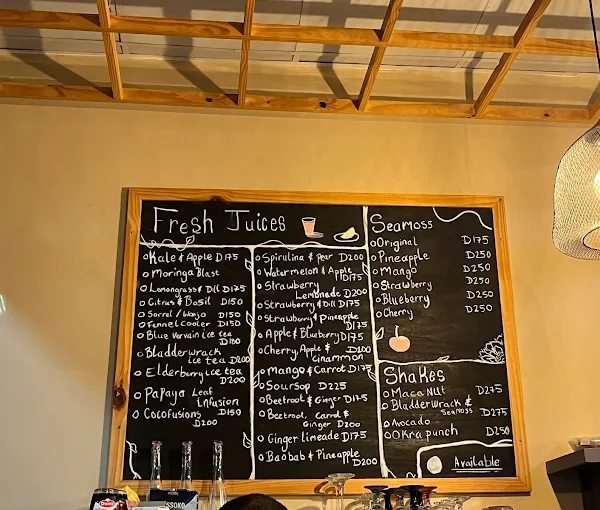 Fresh Juices
Kale & Apple D175
Moringa Blast
Lemongrass & Dill D175
Citrus & Basil D150
Sorrel / Wonjo D150
Fennel Cooler D150
Blue Vervain ice tea
D180
Bladderwrack
ice tea D200
Elderberry ice tea
D200
Papaya Leaf
Infusion
Cocofusions D150
D200
Spirulina & Pear D200
Watermelon & Apple
D175
Strawberry
Lemonade D200
Strawberry & Dill D175
Strawberry & Pineapple
D175
Apple & Blueberry D175
Cherry, Apple & D200
Cinammon
Mango & Carrot D175
Soursop D225
Beetroot & Ginger D175
Beetroot, Carrot &
Ginger D200
Ginger limeade D175
Baobab & Pineapple
D200
Seamoss
Original D175
Pineapple D250
Mango D250
Strawberry D250
Blueberry D250
Cherry D250
Shakes
Maca Nut D275
Bladderwrack &
Seamoss D275
Avocado
Okra punch D250
Available
SSOKO